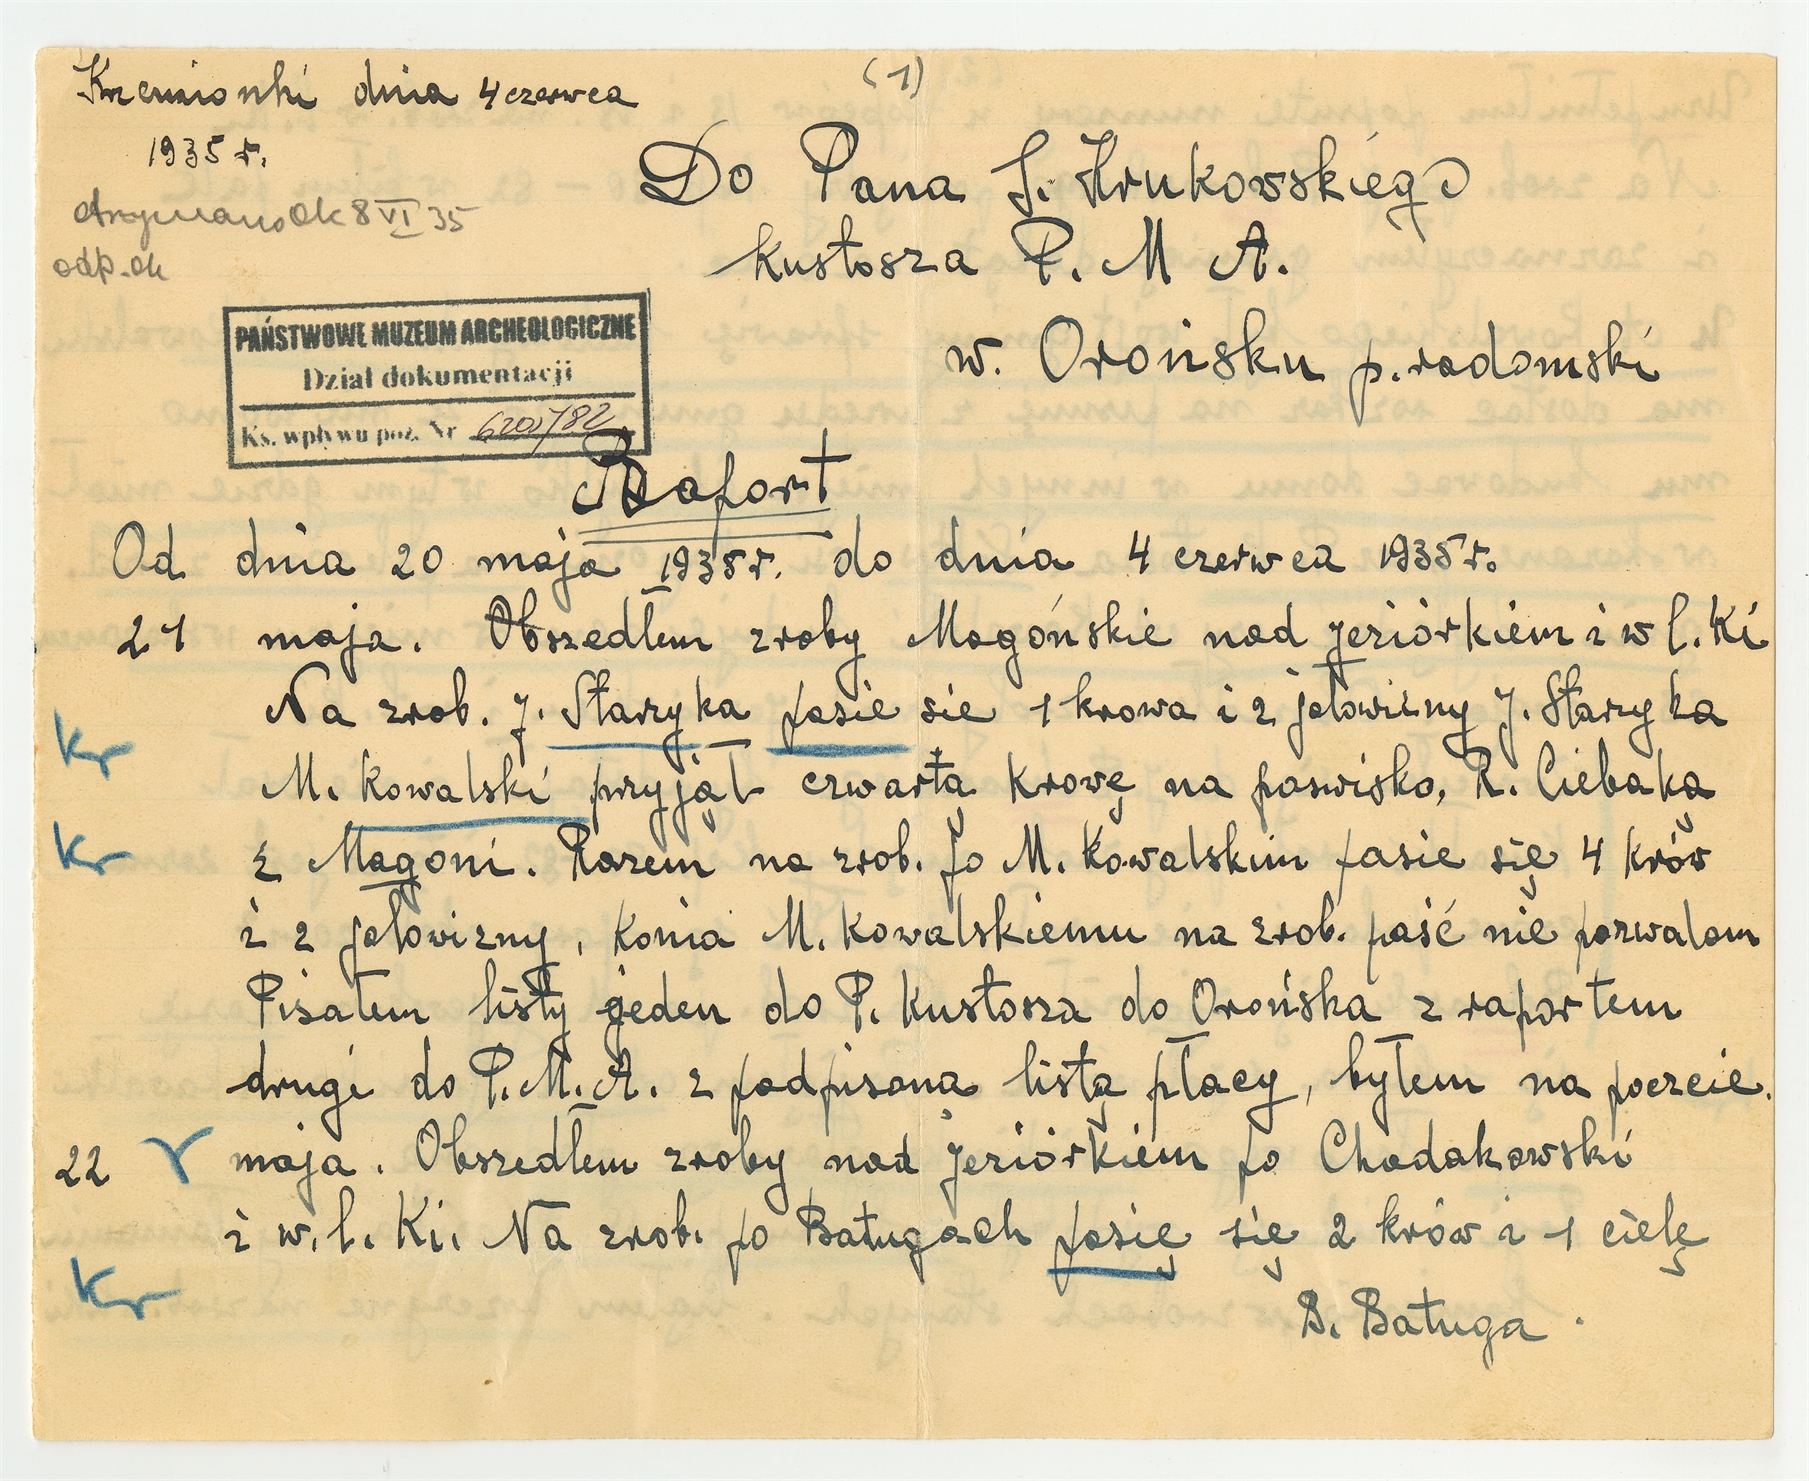 (1)
Krzemionki dnia 4 czerwca
1935 r.
otrzymano dk 8 VI 35
odp. dk
Do Pana S. Krukowskiego
kustosza P. M A.
w. Orońsku p. radomski
PAŃSTWOWE MUZEUM ARCHEOLOGICZNE
Dział dokumentacji
Ks. wpływu poz. Nr
Raport
Od dnia 20 maja 1935 r. do dnia 4 czerwca 1935 r.
21 maja. Obszedłem zroby Magońskie nad jeziórkiem i w l. Ki
Na zrob. J. Starzyka pasie sie 1 krowa i 2 jałowizny J. Starzyka
Kr
M. Kowalski przyjął czwartą krowę na paswisko, R. Ciebaka
Kr
z Magoni. Razem na zrob. po M. Kowalskim pasie się 4 krów
i 2 jałowizny, konia M. Kowalskiemu na zrob. paść nie pozwalam
Pisałem listy jeden do P. Kustosza do Orońska z raportem
drugi do P.M.A. z podpisana listą płacy, byłem na poczcie.
22 maja. Obszedłem zroby nad jeziórkiem po Chodakowski
i w. l. Ki. Na zrob. po Batugach pasię się 2 krów i 1 cielę
Kr
B. Batuga.